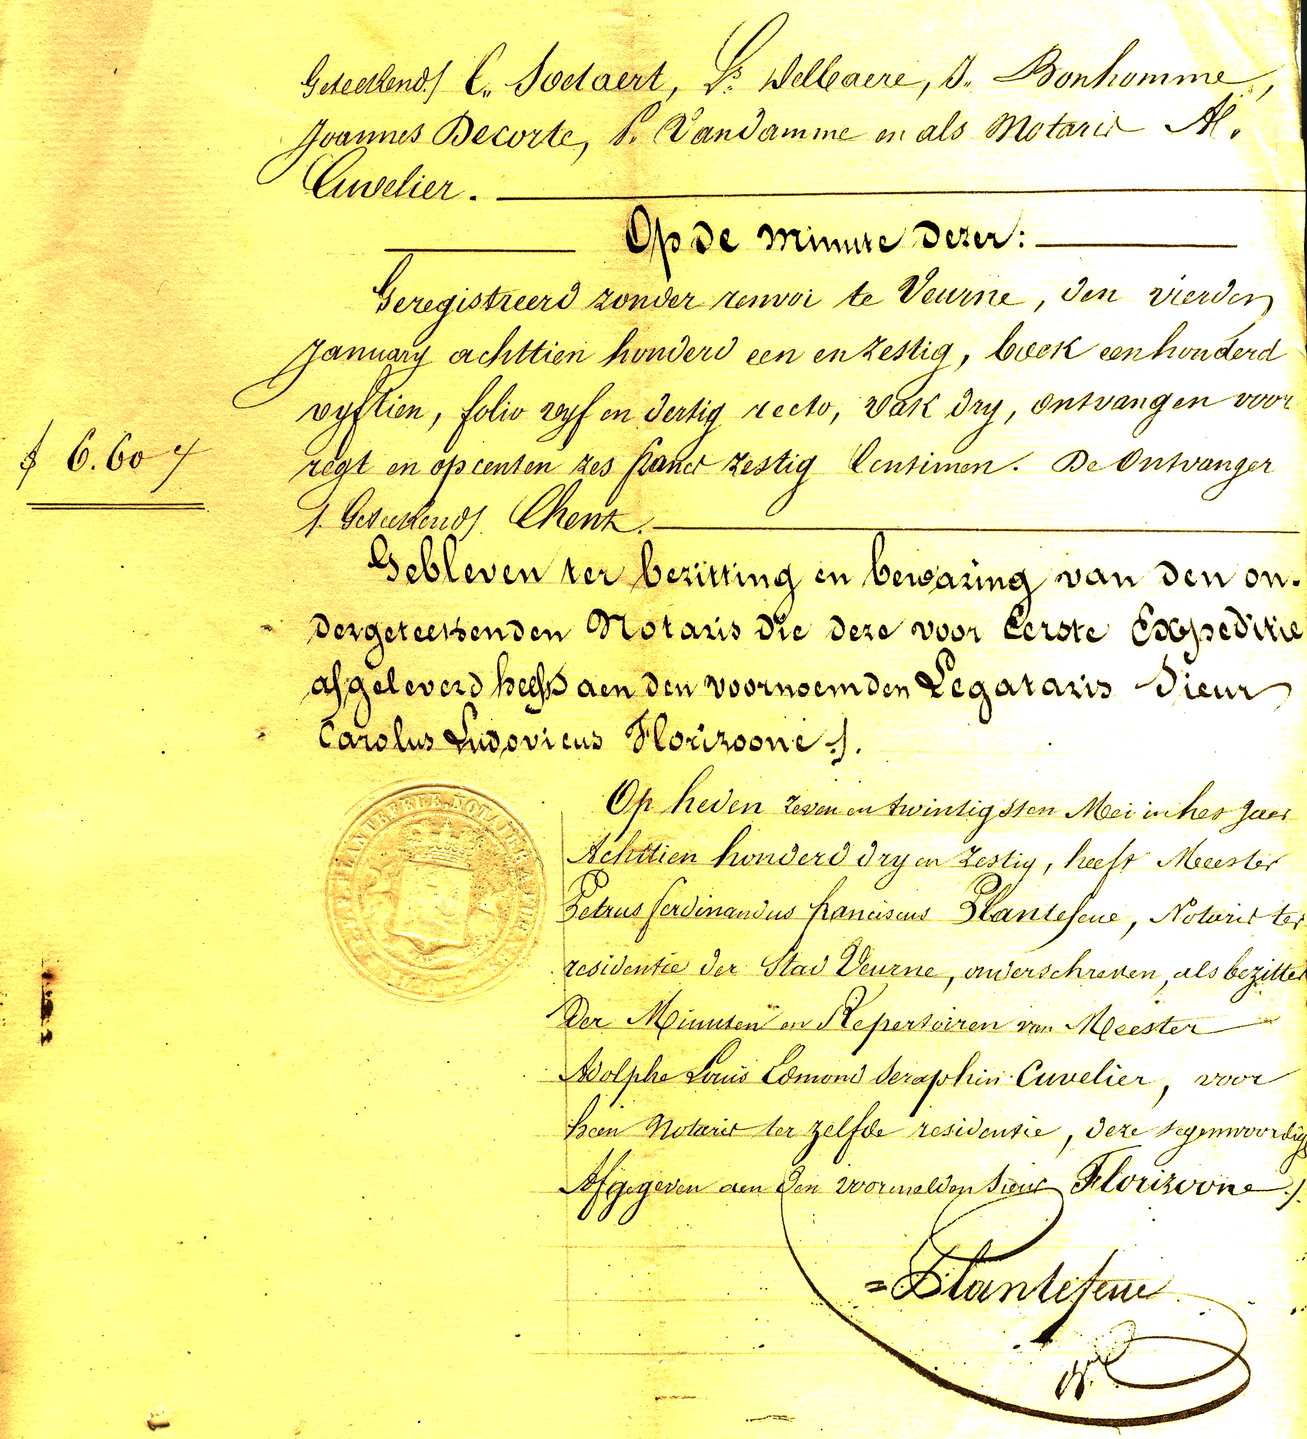 Geteekend/ C. Soetaert, Ls. Delbaere, J. Bonhomme,
Joannes Decorte, P. Vandamme en als Notaris Al.
Cuvelier.
Op de Minute dezer:
Geregistreerd zonder renvoi te Veurne, den vierden
January achttien honderd een en zestig, boek eenhonderd
vyftien, folio vyf en dertig recto, vak dry, ontvangen voor
regt en opcenten zes francs zestig Centimen. De Ontvanger
6.60
/ Geteekend/
Gebleven ter bezitting en bewaring van den on-
dergeteekenden Notaris die deze voor Eerste Expeditie
afgeleverd heeft aen den voornoemden Legataris Sieur
Carolus Ludovicus Florizoone /.
Op heden zeven en twintigsten Mei in het jaer
Achttien honderd dry en zestig, heeft Meester
Petrus ferdinandus franciscus Plantefeve, Notaris ter
residentie der Stad Veurne, onderschreven, als bezitter
Der Minuten en Repertoiren van Meester
Adolphe Louis Edmond Seraphin Cuvelier, voor
heen Notaris ter zelfde residentie, deze tegenwoordig
Afgegeven aen den voormelden Sieur Florizoone /.
Plantefeve